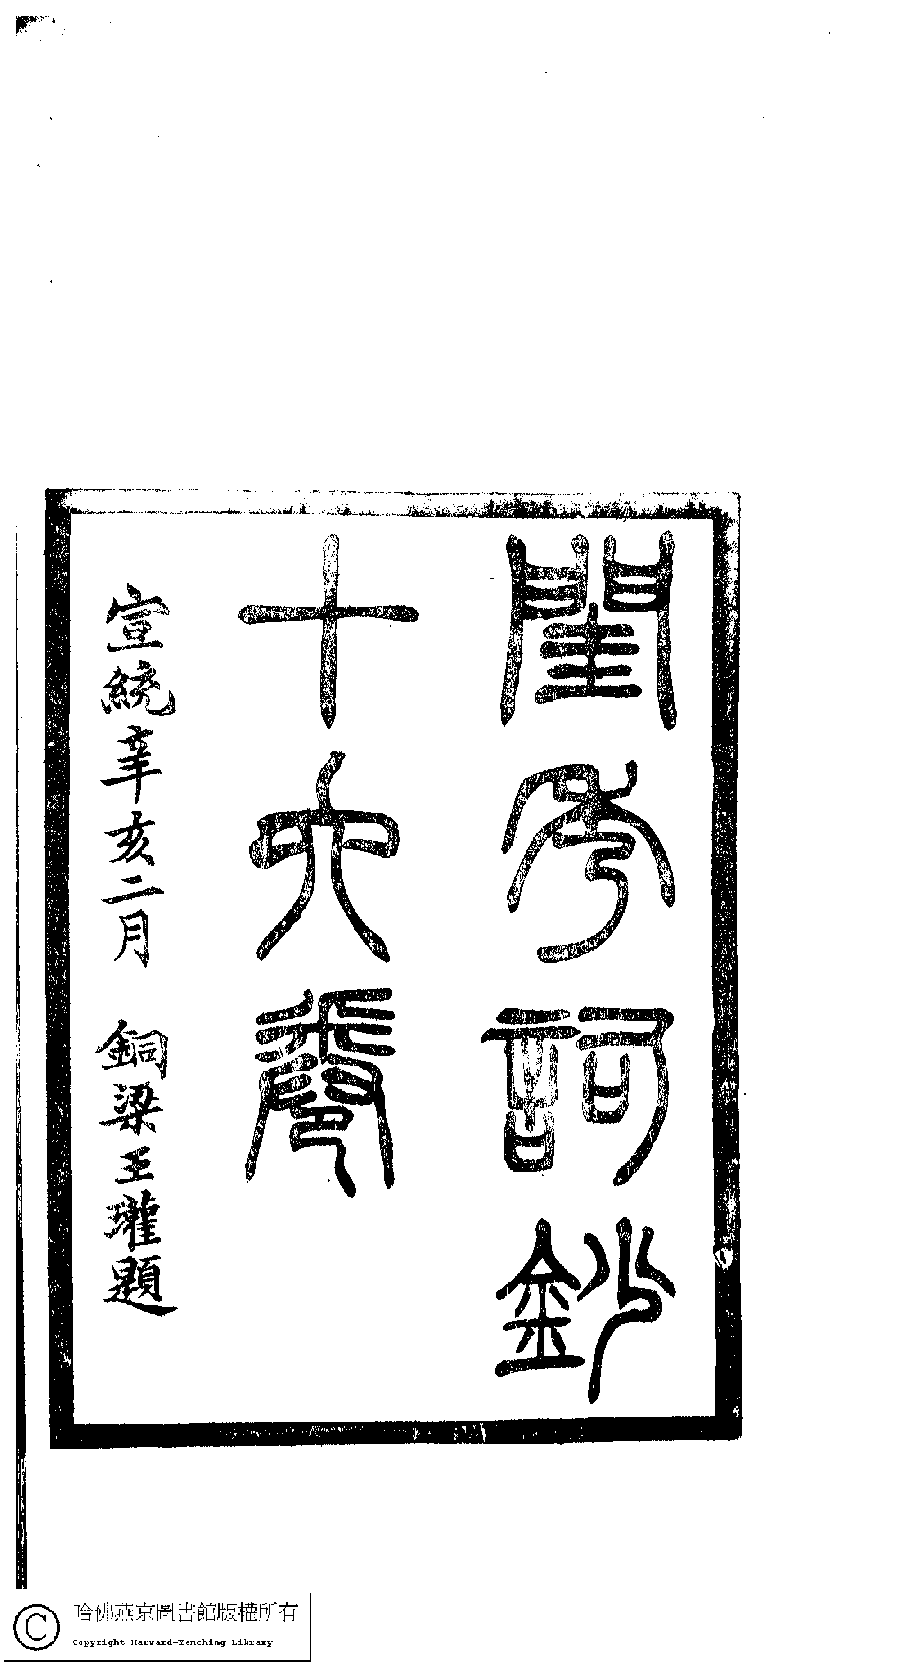 閨秀詞鈔
十六卷
宣統辛亥二月 銅梁王瓘題
哈佛燕京圖書館版權所有
Copyright Harvard-Yenching Library